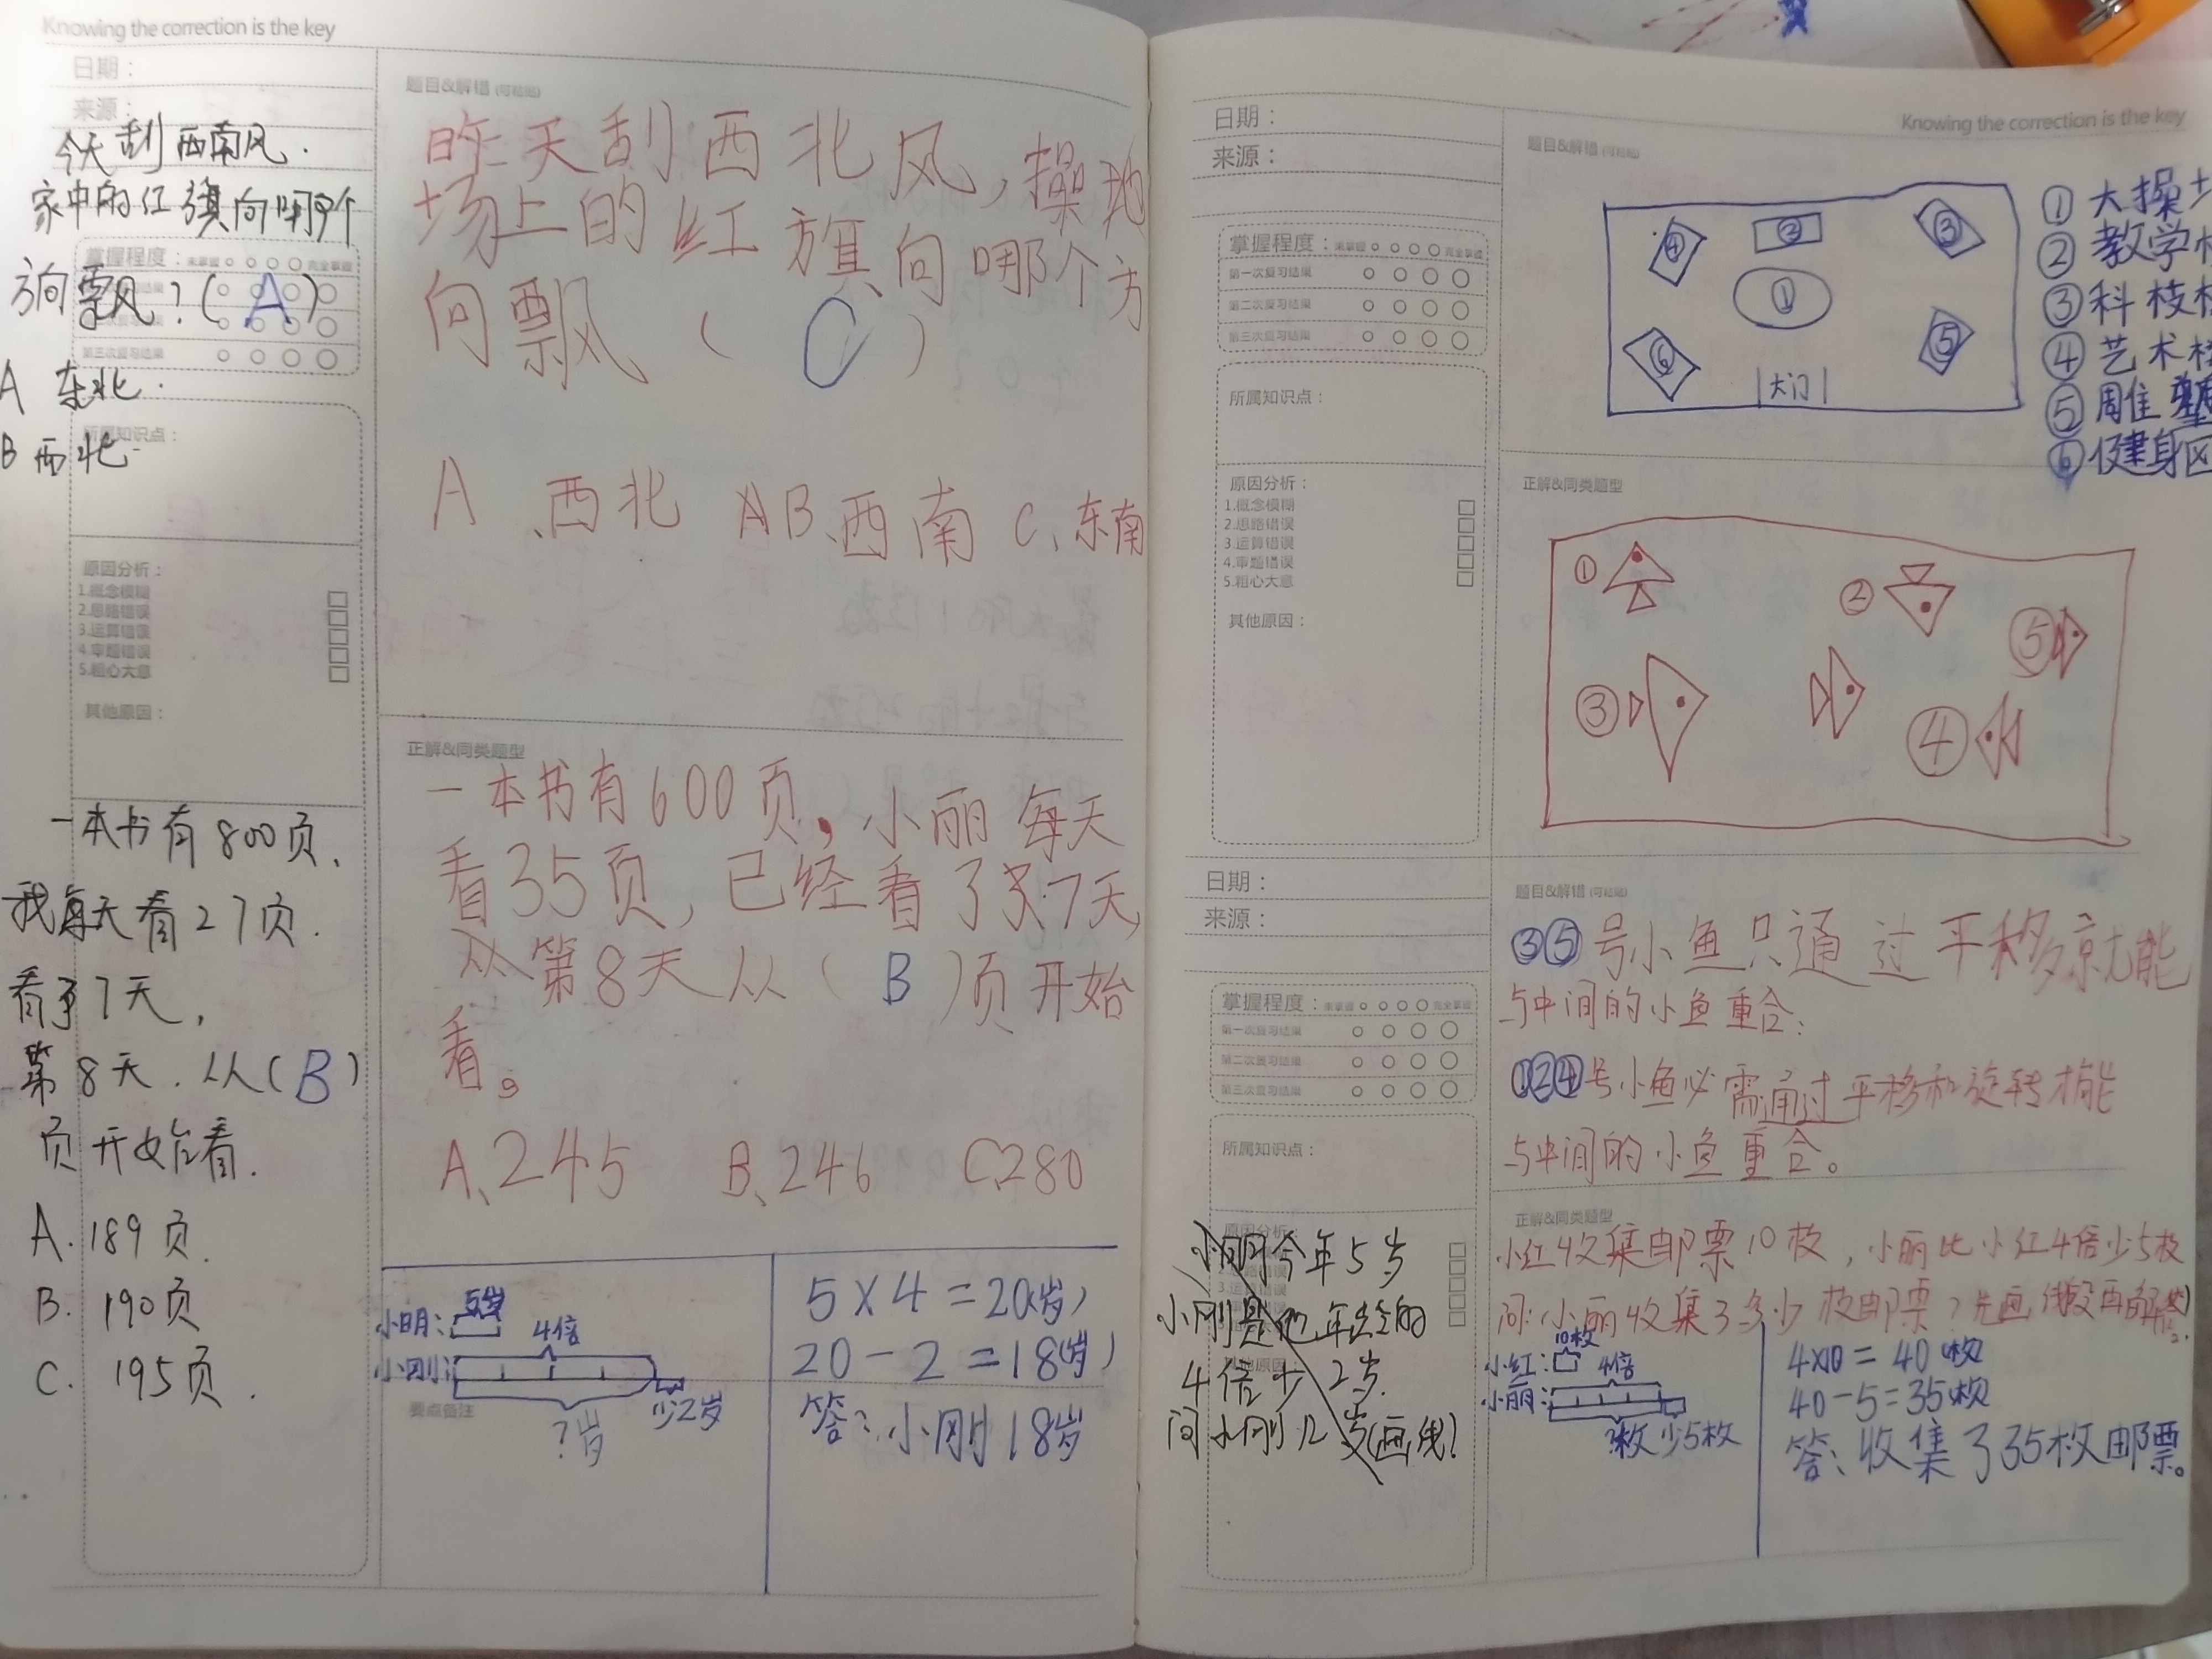 Knowing the correction is the key
日期：
来源：
今天刮西南风.
家中的红旗向哪个
方向飘？( A )
A 东北.
B 西北.
掌握程度：
第三次复习结果
所属知识点：
原因分析：
1.概念模糊
2.思路错误
3.运算错误
4.审题错误
5.粗心大意
其他原因：
一本书有800页.
我每天看27页.
看了7天,
第8天.从(B)
页开始看.
A. 189页.
B. 190页
C. 195页.
题目&解错 (可粘贴)
昨天刮西北风,操
场上的红旗向哪个方
向飘 ( C )
A、西北 B、西南 C、东南
正解&同类题型
一本书有600页,小丽每天
看35页,已经看了7天,
从第8天从( B )页开始
看。
A、245 B、246 C280
小明： 5岁
4倍
小刚：
少2岁
?岁
要点备注
5×4=20(岁)
20-2=18(岁)
答：小刚18岁
Knowing the correction is the key
日期：
来源：
掌握程度：未掌握 完全掌握
第一次复习结果
第二次复习结果
第三次复习结果
所属知识点：
原因分析：
1.概念模糊
2.思路错误
3.运算错误
4.审题错误
5.粗心大意
其他原因：
题目&解错 (可粘贴)
④ ② ③
①
⑥ ⑤
大门
① 大操
② 教学
③ 科枝
④ 艺术
⑤ 周佳
⑥ 健身区
正解&同类题型
① ② ⑤
③ ④
日期：
来源：
掌握程度：未掌握 完全掌握
第一次复习结果
第二次复习结果
第三次复习结果
所属知识点：
原因分析：
小明今年5岁
小刚是他年龄的
4倍少2岁.
问小刚几岁(画线)
题目&解错 (可粘贴)
③⑤号小鱼只通过平移就能
与中间的小鱼重合;
①②④号小鱼必需通过平移和旋转才能
与中间的小鱼重合。
正解&同类题型
小红收集邮票10枚,小丽比小红4倍少5枚
问:小丽收集了多少枚邮票?先画线段再解答
小红： 10枚
4倍
小丽：
?枚 少5枚
4×10=40枚
40-5=35枚
答：收集了35枚邮票。